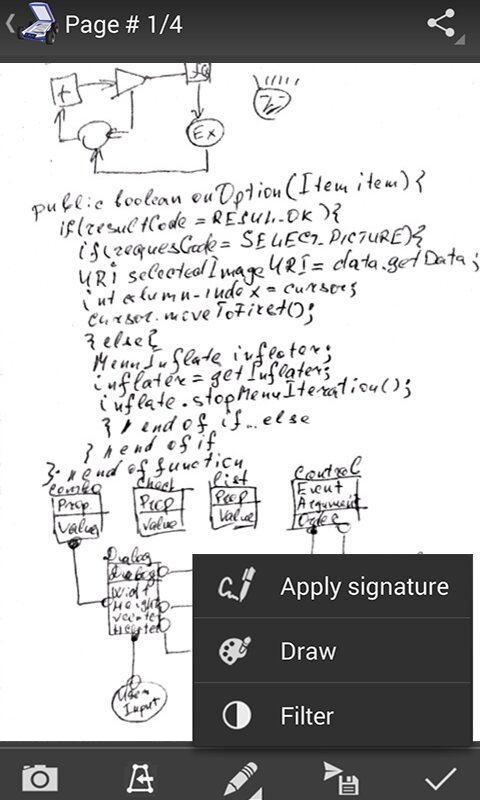 Page # 1/4
+
Ex
public boolean onOption(Item item){
if(resultCode = RESUL_OK){
if(requesCode = SELECT_PICTURE){
URI selectedImageURI = data.getData;
int column_index = cursor;
cursor.moveToFirst();
} else{
MenuInflate inflater;
inflater = getInflater;
inflate.stopMenuIteration();
} // end of if...else
} // end of if
} // end of function
Combo
Prop.
Value
Check
Prop
Value
List
Prop
Value
Control
Event
Argument
Order
Dialog
Dialog
Widt
Height
Vcenter
Hcenter
User
Input
Apply signature
Draw
Filter